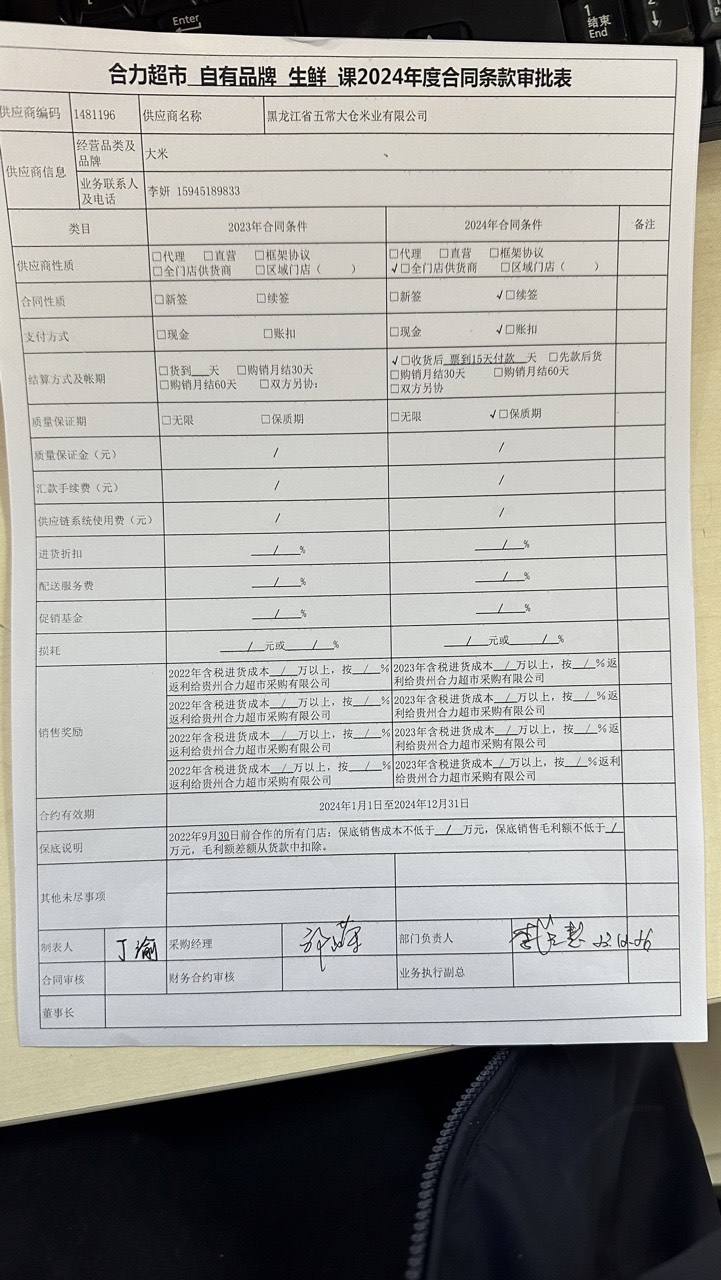 Enter
1
结束
End
2
↓
合力超市 自有品牌 生鲜 课2024年度合同条款审批表
供应商编码 1481196 供应商名称 黑龙江省五常大仓米业有限公司
供应商信息 经营品类及品牌 大米 、
业务联系人及电话 李妍 15945189833
类目 2023年合同条件 2024年合同条件 备注
供应商性质 □代理 □直营 □框架协议 □代理 □直营 □框架协议
□全门店供货商 □区域门店（ ） √□全门店供货商 □区域门店（ ）
合同性质 □新签 □续签 □新签 √□续签
支付方式 □现金 □账扣 □现金 √□账扣
结算方式及帐期 □货到___天 □购销月结30天 √□收货后 票到15天付款 天 □先款后货
□购销月结60天 □双方另协: □购销月结30天 □购销月结60天
□双方另协
质量保证期 □无限 □保质期 □无限 √□保质期
质量保证金（元） / /
汇款手续费（元） / /
供应链系统使用费（元） / /
进货折扣 __/__% __/__%
配送服务费 __/__% __/__%
促销基金 __/__% __/__%
损耗 __/__元或__/__% __/__元或__/__%
销售奖励
2022年含税进货成本_/_万以上，按_/_% 2023年含税进货成本_/_万以上，按_/_%返
返利给贵州合力超市采购有限公司 利给贵州合力超市采购有限公司
2022年含税进货成本_/_万以上，按_/_% 2023年含税进货成本_/_万以上，按_/_%返
返利给贵州合力超市采购有限公司 利给贵州合力超市采购有限公司
2022年含税进货成本_/_万以上，按_/_% 2023年含税进货成本_/_万以上，按_/_%返
返利给贵州合力超市采购有限公司 利给贵州合力超市采购有限公司
2022年含税进货成本_/_万以上，按_/_% 2023年含税进货成本_/_万以上，按_/_%返利
返利给贵州合力超市采购有限公司 给贵州合力超市采购有限公司
合约有效期 2024年1月1日至2024年12月31日
保底说明 2022年9月30日前合作的所有门店：保底销售成本不低于_/_万元，保底销售毛利额不低于_/_
万元，毛利额差额从货款中扣除。
其他未尽事项
制表人 丁瑜 采购经理 部门负责人
合同审核 财务合约审核 业务执行副总
董事长